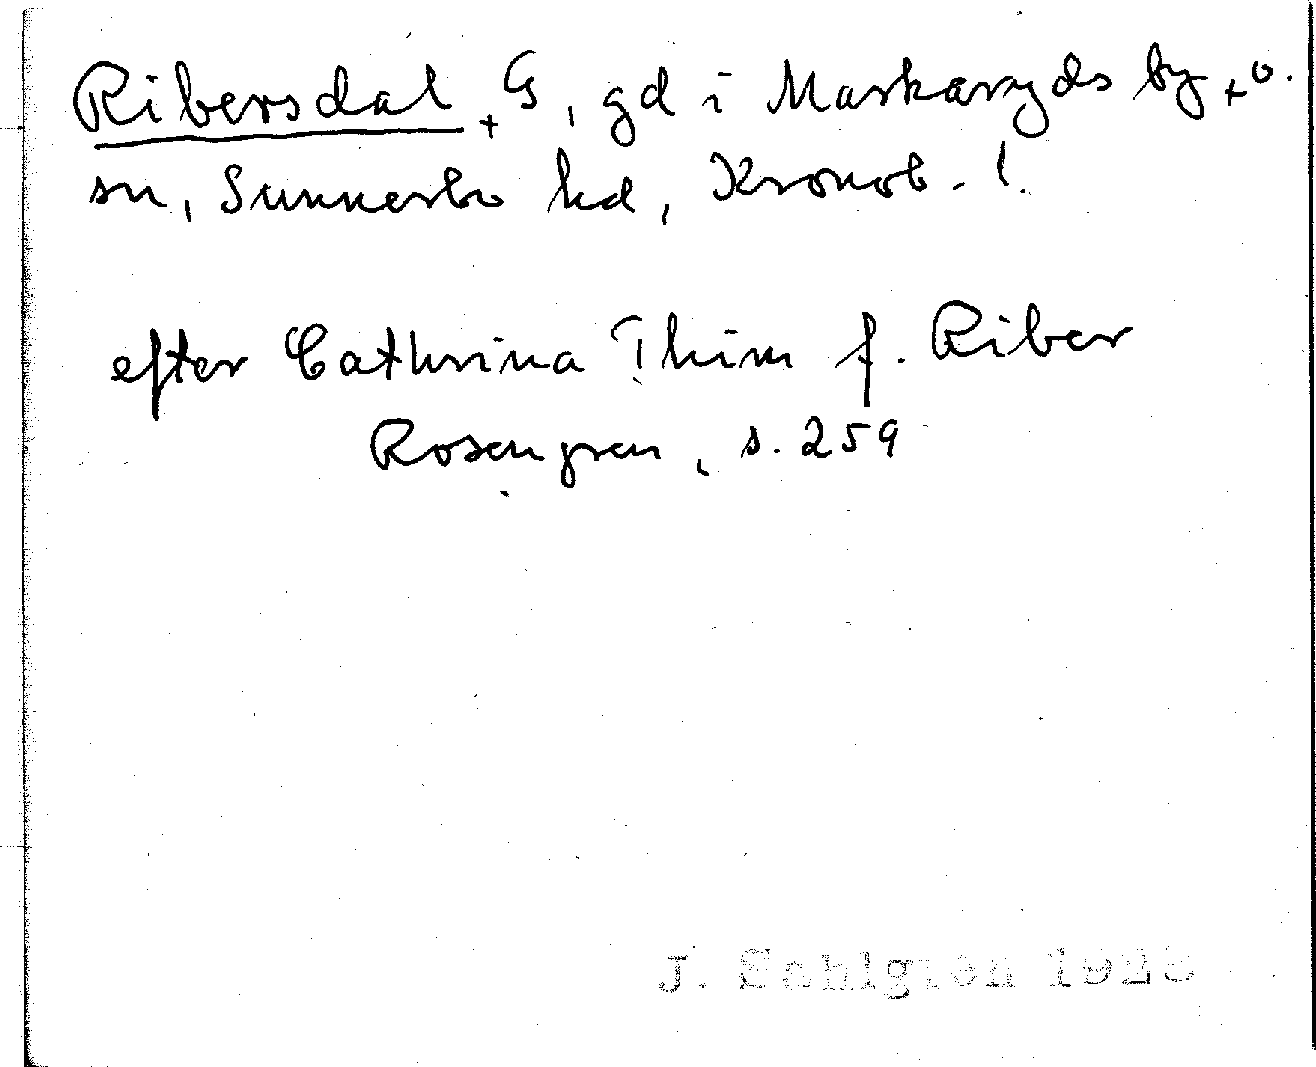 Ribersdal + G, gd i Markaryds by + o.
sn, Sunnerbo hd, Kronob. l.
efter Cathrina Thim f. Riber
Rosengren, s. 259
J. Sahlgren 1925